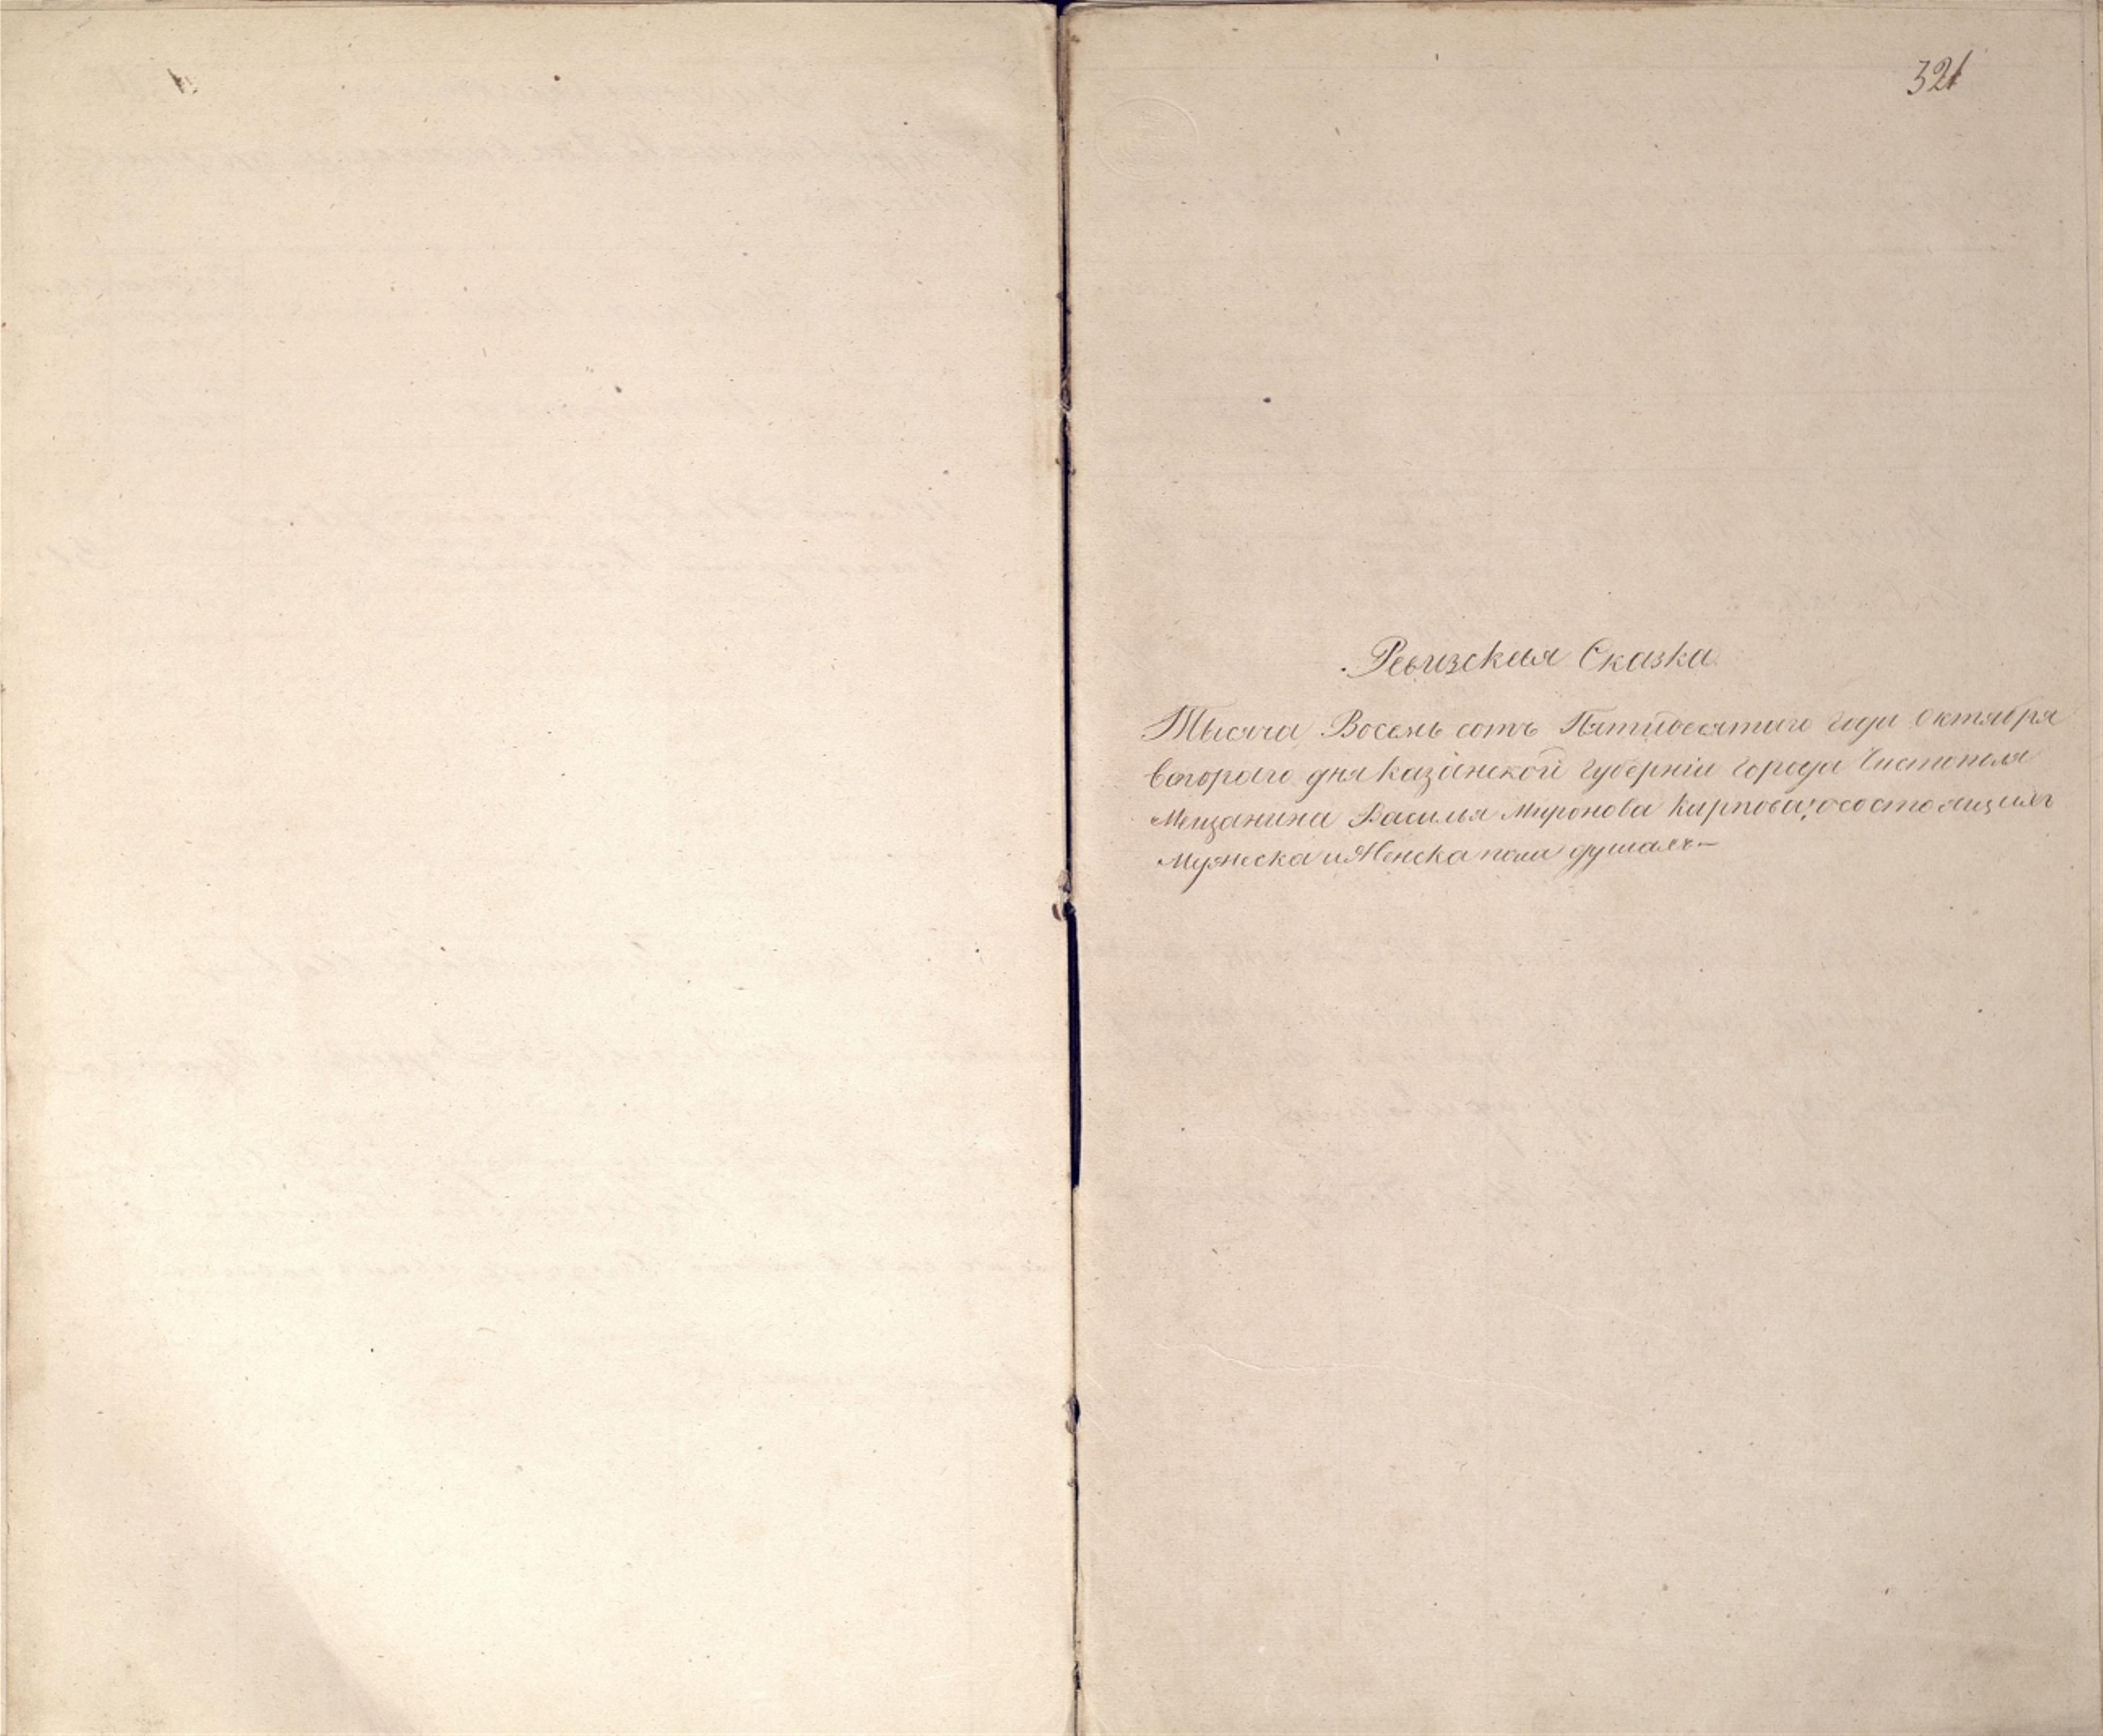 321
Ревизская Сказка
Тысяча Восемь сотъ Пятидесятаго года Октября
втораго дня Казанской Губерніи Города Чистополя
Мещанина Василья Миронова Карпова, о состоящихъ
Мужеска и Женска пола душахъ—